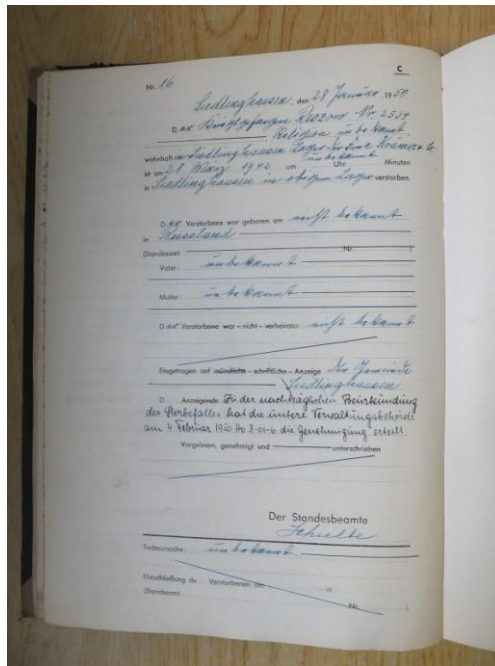 C
Nr. 16
Siedlinghausen, den 28 Januar 1950
Der Kriegsgefangene Reszow Nr. 2509
Religion unbekannt
wohnhaft in Siedlinghausen Lager der Firma Krämer
ist am 28 März 1942 um unbekannt Uhr Minuten
in Siedlinghausen in obigem Lager verstorben.
Der Verstorbene war geboren am nicht bekannt
in Russland
(Standesamt Nr. )
Vater: unbekannt
Mutter: unbekannt
Der Verstorbene war – nicht – verheiratet nicht bekannt
Eingetragen auf mündliche – schriftliche – Anzeige der Gemeinde
Siedlinghausen
D Anzeigende Zu der nachträglichen Beurkundung
des Sterbefalles hat die untere Verwaltungsbehörde
am 4. Februar 1950 3-01-6 die Genehmigung erteilt
Vorgelesen, genehmigt und unterschrieben
Der Standesbeamte
Schulte
Todesursache: unbekannt.
Eheschließung de Verstorbenen am in
(Standesamt Nr. )